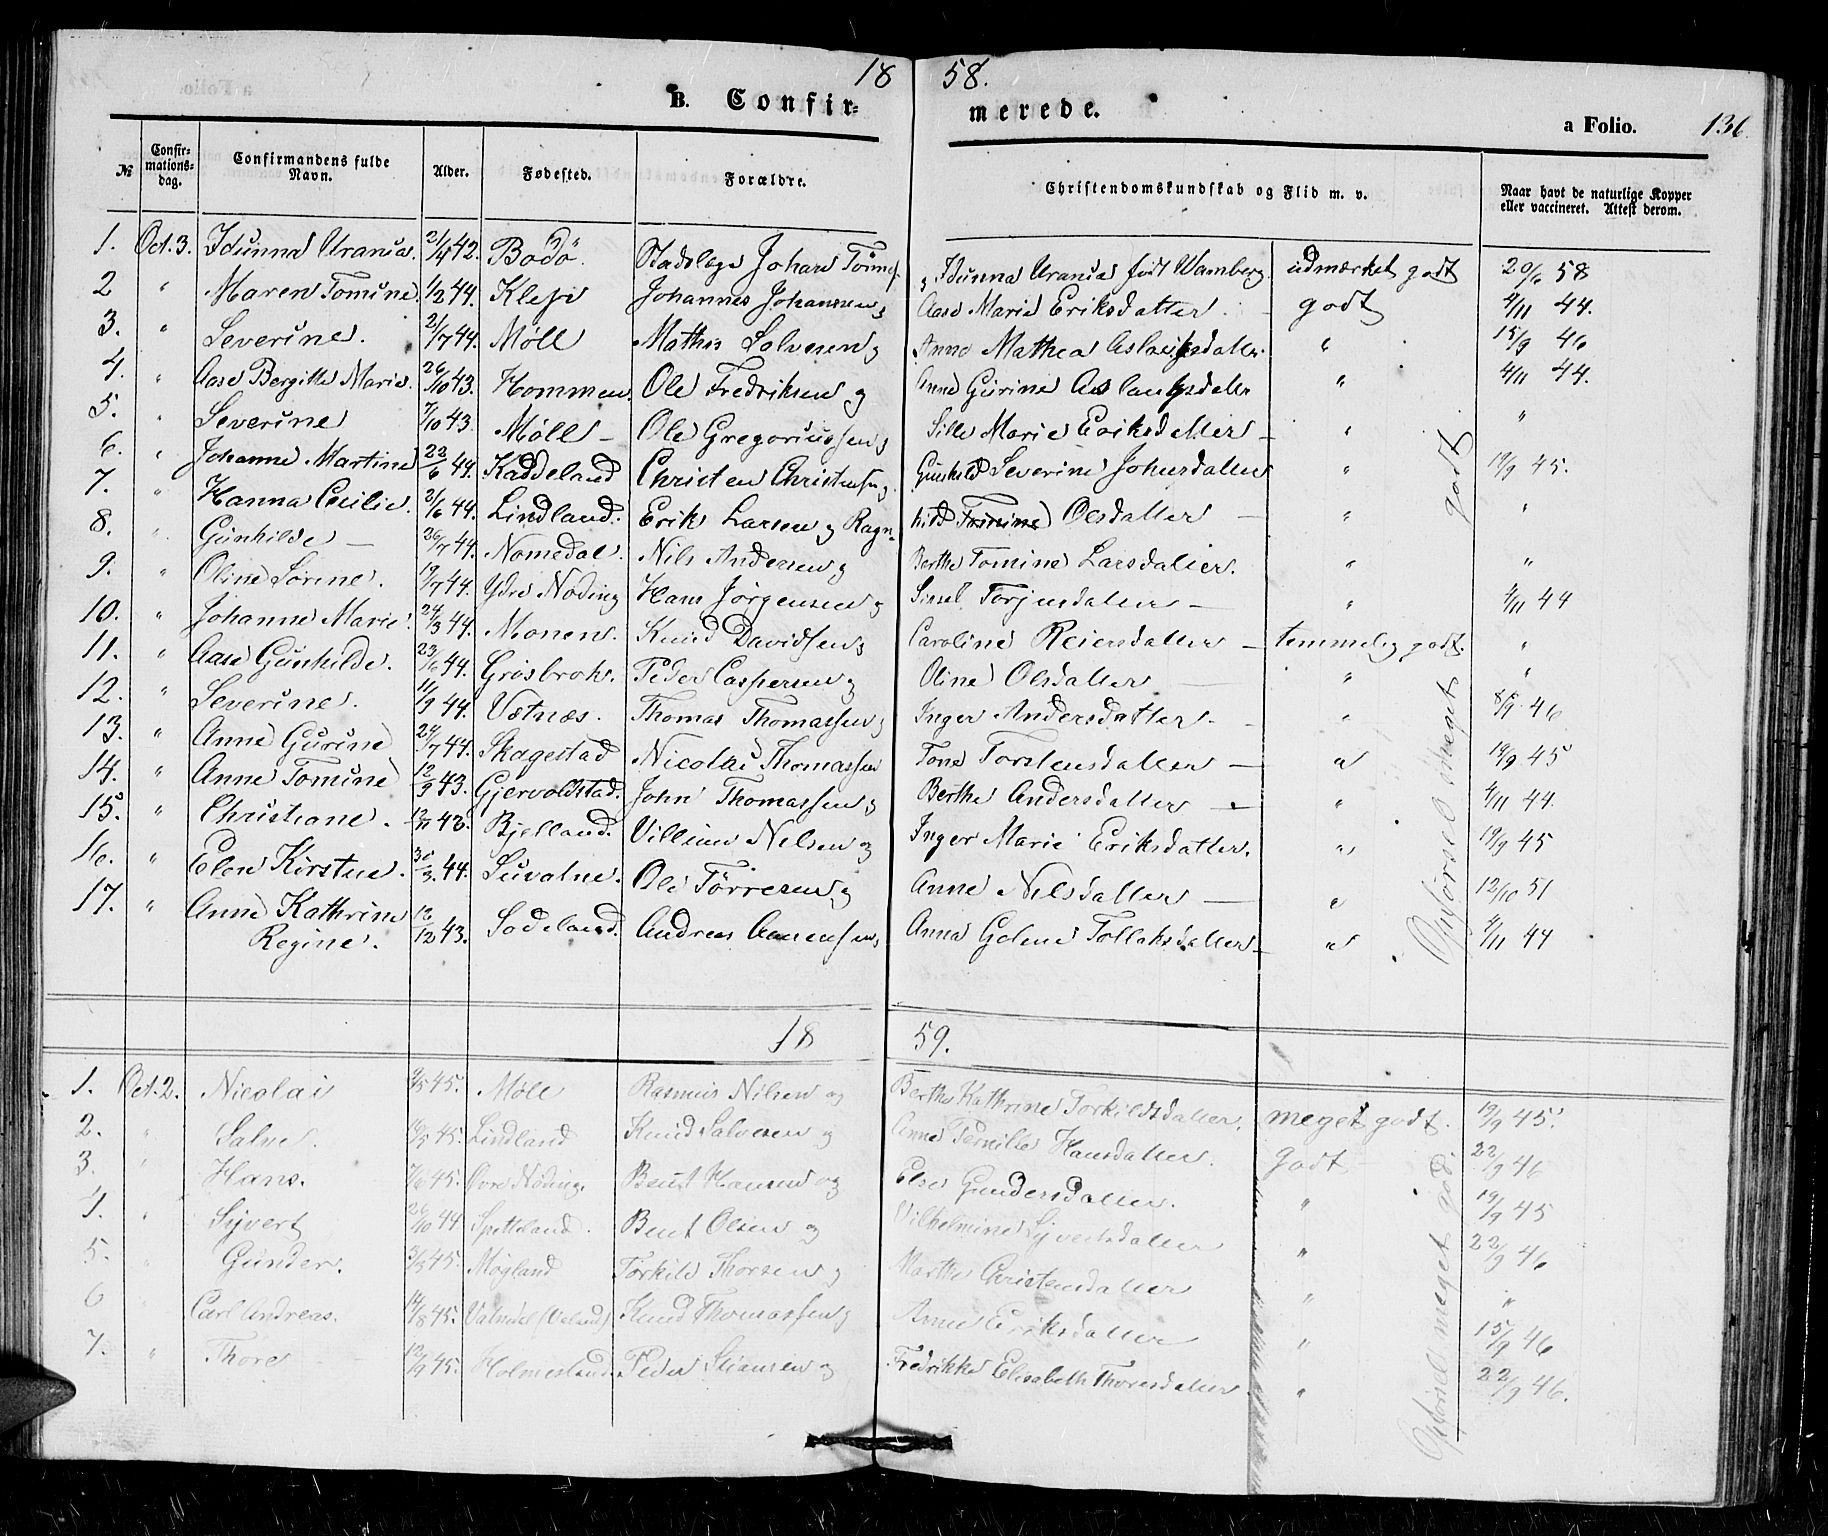 18 58.
B. Confirmerede.
a Folio. 136.
№ Confirmationsdag. Confirmandens fulde Navn. Alder. Fødested. Forældre. Christendomskundskab og Flid m. v. Naar havt de naturlige Kopper eller vaccineret. Attest derom.
1. Oct. 3. Idunna Urania. 21/4 42. Bodö. Johan & Idunna Urania født Wamberg. udmærket godt 20/6 58
2 " Maren Tomine. 1/2 44. Klepi Johannes Johansen & Aase Marie Eriksdatter. godt 4/11 44.
3. " Severine. 21/7 44. Møll Mathis Salvesen & Anne Mathea Aslaksdatter. " 15/9 46
4. " Aase Bergitte Marie. 26/10 43. Hommen. Ole Fredriksen & Anne Gurine Aslaksdatter " 4/11 44.
5. " Severine 7/10 43. Møll — Ole Gregoriussen & Sille Marie Eriksdatter — " "
6. " Johanne Martine 22/6 44. Kaddeland Christen Christensen & Gunhild Severine Johnsdatter " 19/9 45.
7. " Hanna Cecilie. 2/6 44. Lindland. Erik Larsen & Ragnhild Tomine Olsdatter — " "
8. " Gunhilde — 26/7 44. Nomedal. Nils Andersen & Berthe Tomine Larsdatter. " "
9. " Oline Sörine. 19/7 44. Ydre Nöding Hans Jörgensen & Sissel Torjusdatter — " 4/11 44
10. " Johanne Marie. 24/3 44. Monen. Knud Davidsen & Caroline Reiersdatter — temmelig godt. "
11. " Aase Gunhilde. 23/6 44. Grösbrok. Peder Caspersen & Oline Olsdatter — " "
12. " Severine. 11/9 44. Vatnes. Thomas Thomassen & Inger Andersdatter — " 8/9 46
13. " Anne Gurine 24/7 44. Skagestad Nicolai Thomassen Tone Torstensdatter — " 19/9 45
14. " Anne Tomine 12/9 43. Gjervoldstad. John Thomassen & Berthe Andersdatter — " 4/11 44.
15. " Christiane. 13/11 43. Bjelland. Villum Nilsen og Inger Marie Eriksdatter. " 19/9 45
16. " Elen Kirstine. 30/3 44. Suvatne. Ole Törresen & Anne Nilsdatter — " 12/10 51
17. " Anne Kathrine Regine. 12/12 43. Sodeland. Andreas Aanensen & Anna Golene Tollaksdatter — " 4/11 44
Opførsel meget godt
18 59.
1. Oct. 2. Nicolai 45. Møll Rasmus Nilsen og Berthe Kathrine Torkildsdatter. meget godt. 19/9 45.
2. " Salve. 45. Lindland Knud Salvesen og Anne Pernille Hansdatter. Godt 22/9 46
3. " Hans. 7/6 45. Øvre Nöding. Bent Hansen og Else Gundersdatter. " 19/9 45
4. " Syvert 26/10 44. Spetteland. Bent Olsen og Vilhelmine Syvertsdatter " 22/9 46
5. " Gunder. 3/5 45. Mögland Torkild Thorsen & Marthe Christensdatter " "
6 " Carl Andreas. 14/8 45. (Veland) Knud Thomassen & Anne Eriksdatter " 15/9 46
7. " Thore 12/9 45. Holmesland Peder Stiansen og Fredrikke Elisabeth Thoresdatter. " 22/9 46.
Opførsel meget god.